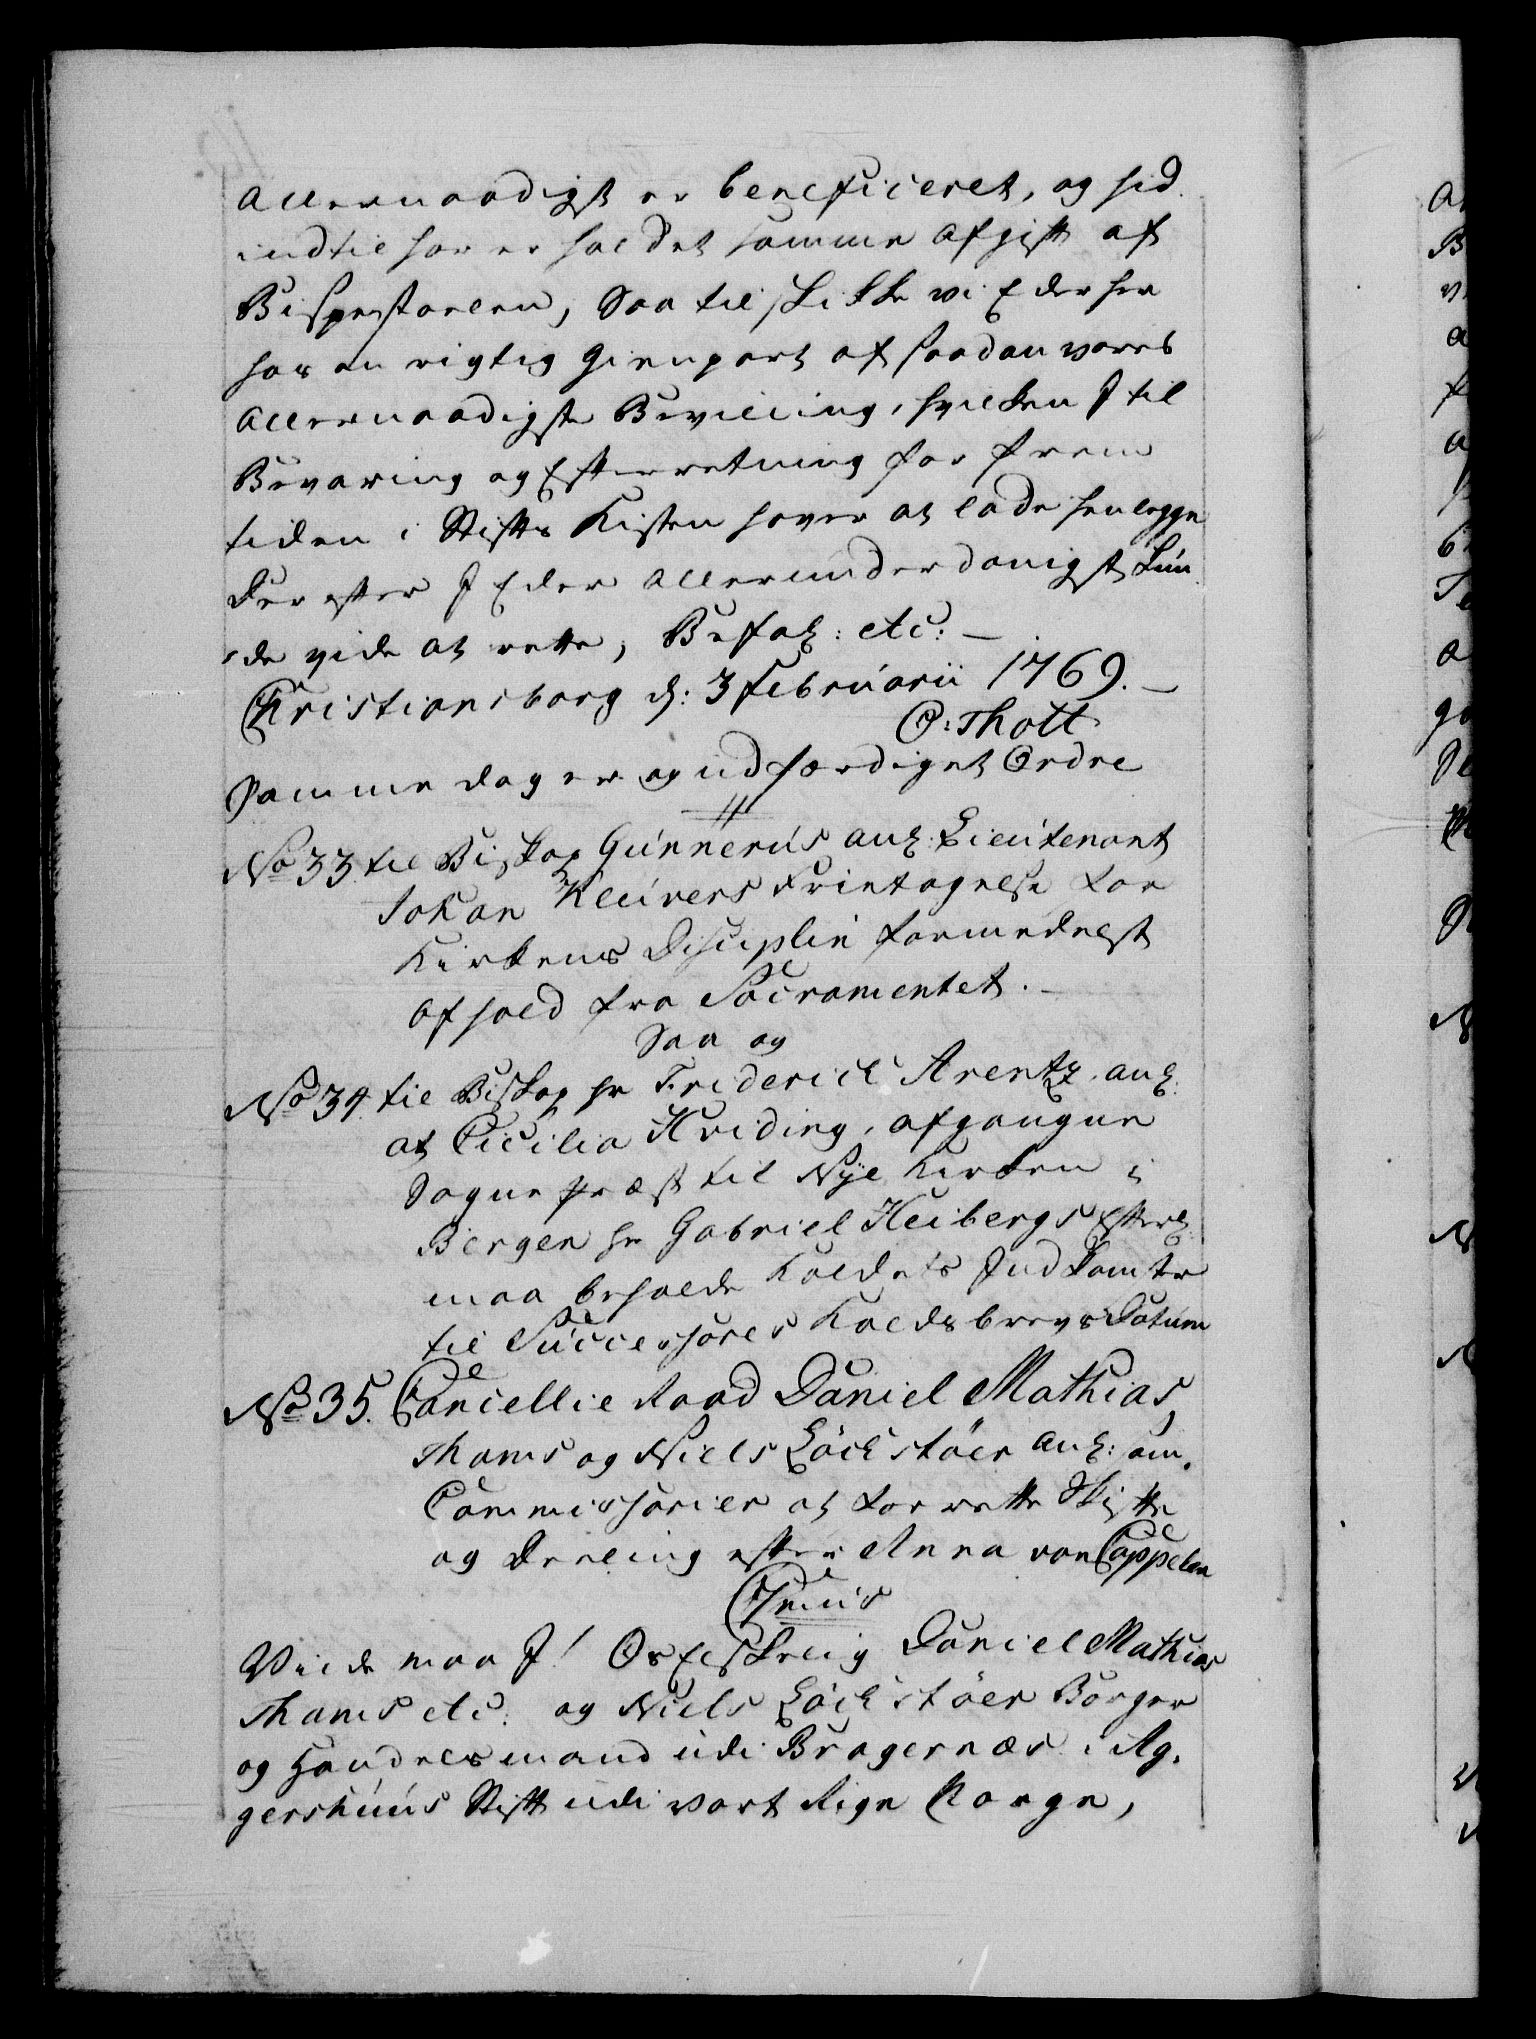 Allernaadigst er beneficeret, og hid
indtil har erholdet samme Afgift af
Bispestoelen, Saa tilskikke vi Eder her
hos en rigtig Gienpart af saadan vores
Allernaadigste Bevilling, hvilken I til
Bevaring og Efterretning for frem
tiden i Stifts Kisten haver at lade henlegge
Derefter I Eder allerunderdanigst kun
de vide at rette, Befal: etc: —
Christiansborg d: 3 Februarii 1769. —
O: Thott
Samme dag er og udfærdiget Ordre
No 33. til Biskop Gunnerus anl: Lieutenant
Johan Kluvers Frietagelse for
Kirkens Disciplin formedelst
Afhold fra Sacramentet. —
Saa og
No 34. til Biskop hr Friderich Arentz anl:
at Cicilia Hviding, afgangne
Sogne Præst til Nye Kirken i
Bergen hr Gabriel Heibergs Efterl:
maa beholde Kaldets Indkomster
til Successores Kaldsbrevs Datum
No 35. Cancellie Raad Daniel Mathias
Thams og Niels Löchstöer anl: om
Commissarier at forrette Skifte
og Deeling efter Anna von Cappelen
C7mus
Viide maa I! Os Elskelig Daniel Mathias
Thams etc: og Niels Löchstöer Borger
og Handelsmand udi Bragernæs i Ag,
gershuus Stift udi vort Rige Norge,